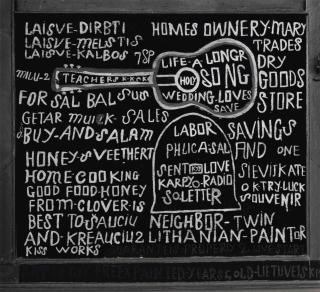 LAISVE-DIRBTI HOMES OWNERY-MARY
LAISVE-MELSTIS TRADES
LAISVE-KALBOS 7SP
LIFE-A LONGR DRY
TEACHERS HOLY SONG GOODS
WEDDING-LOVES STORE
SAVE
FOR SAL BALSUS
GETAR MUICK SALES
BUY-AND-SALAM LABOR SAVINGS
PHLICA-SAL AND ONE
HONEY-SVEETHERT
HOME-COOKING SENT LOVE SIEVISKATE
GOOD FOOD-HONEY KARPYO-RADIO OK-TRY-LUCK
FROM-CLOVER-IS SOLETTER SOUVENIR
BEST TO-SAUCIU NEIGHBOR-TWIN
AND-KREAUCIUZ LITHANIAN-PAINTOR
KISS WORKS